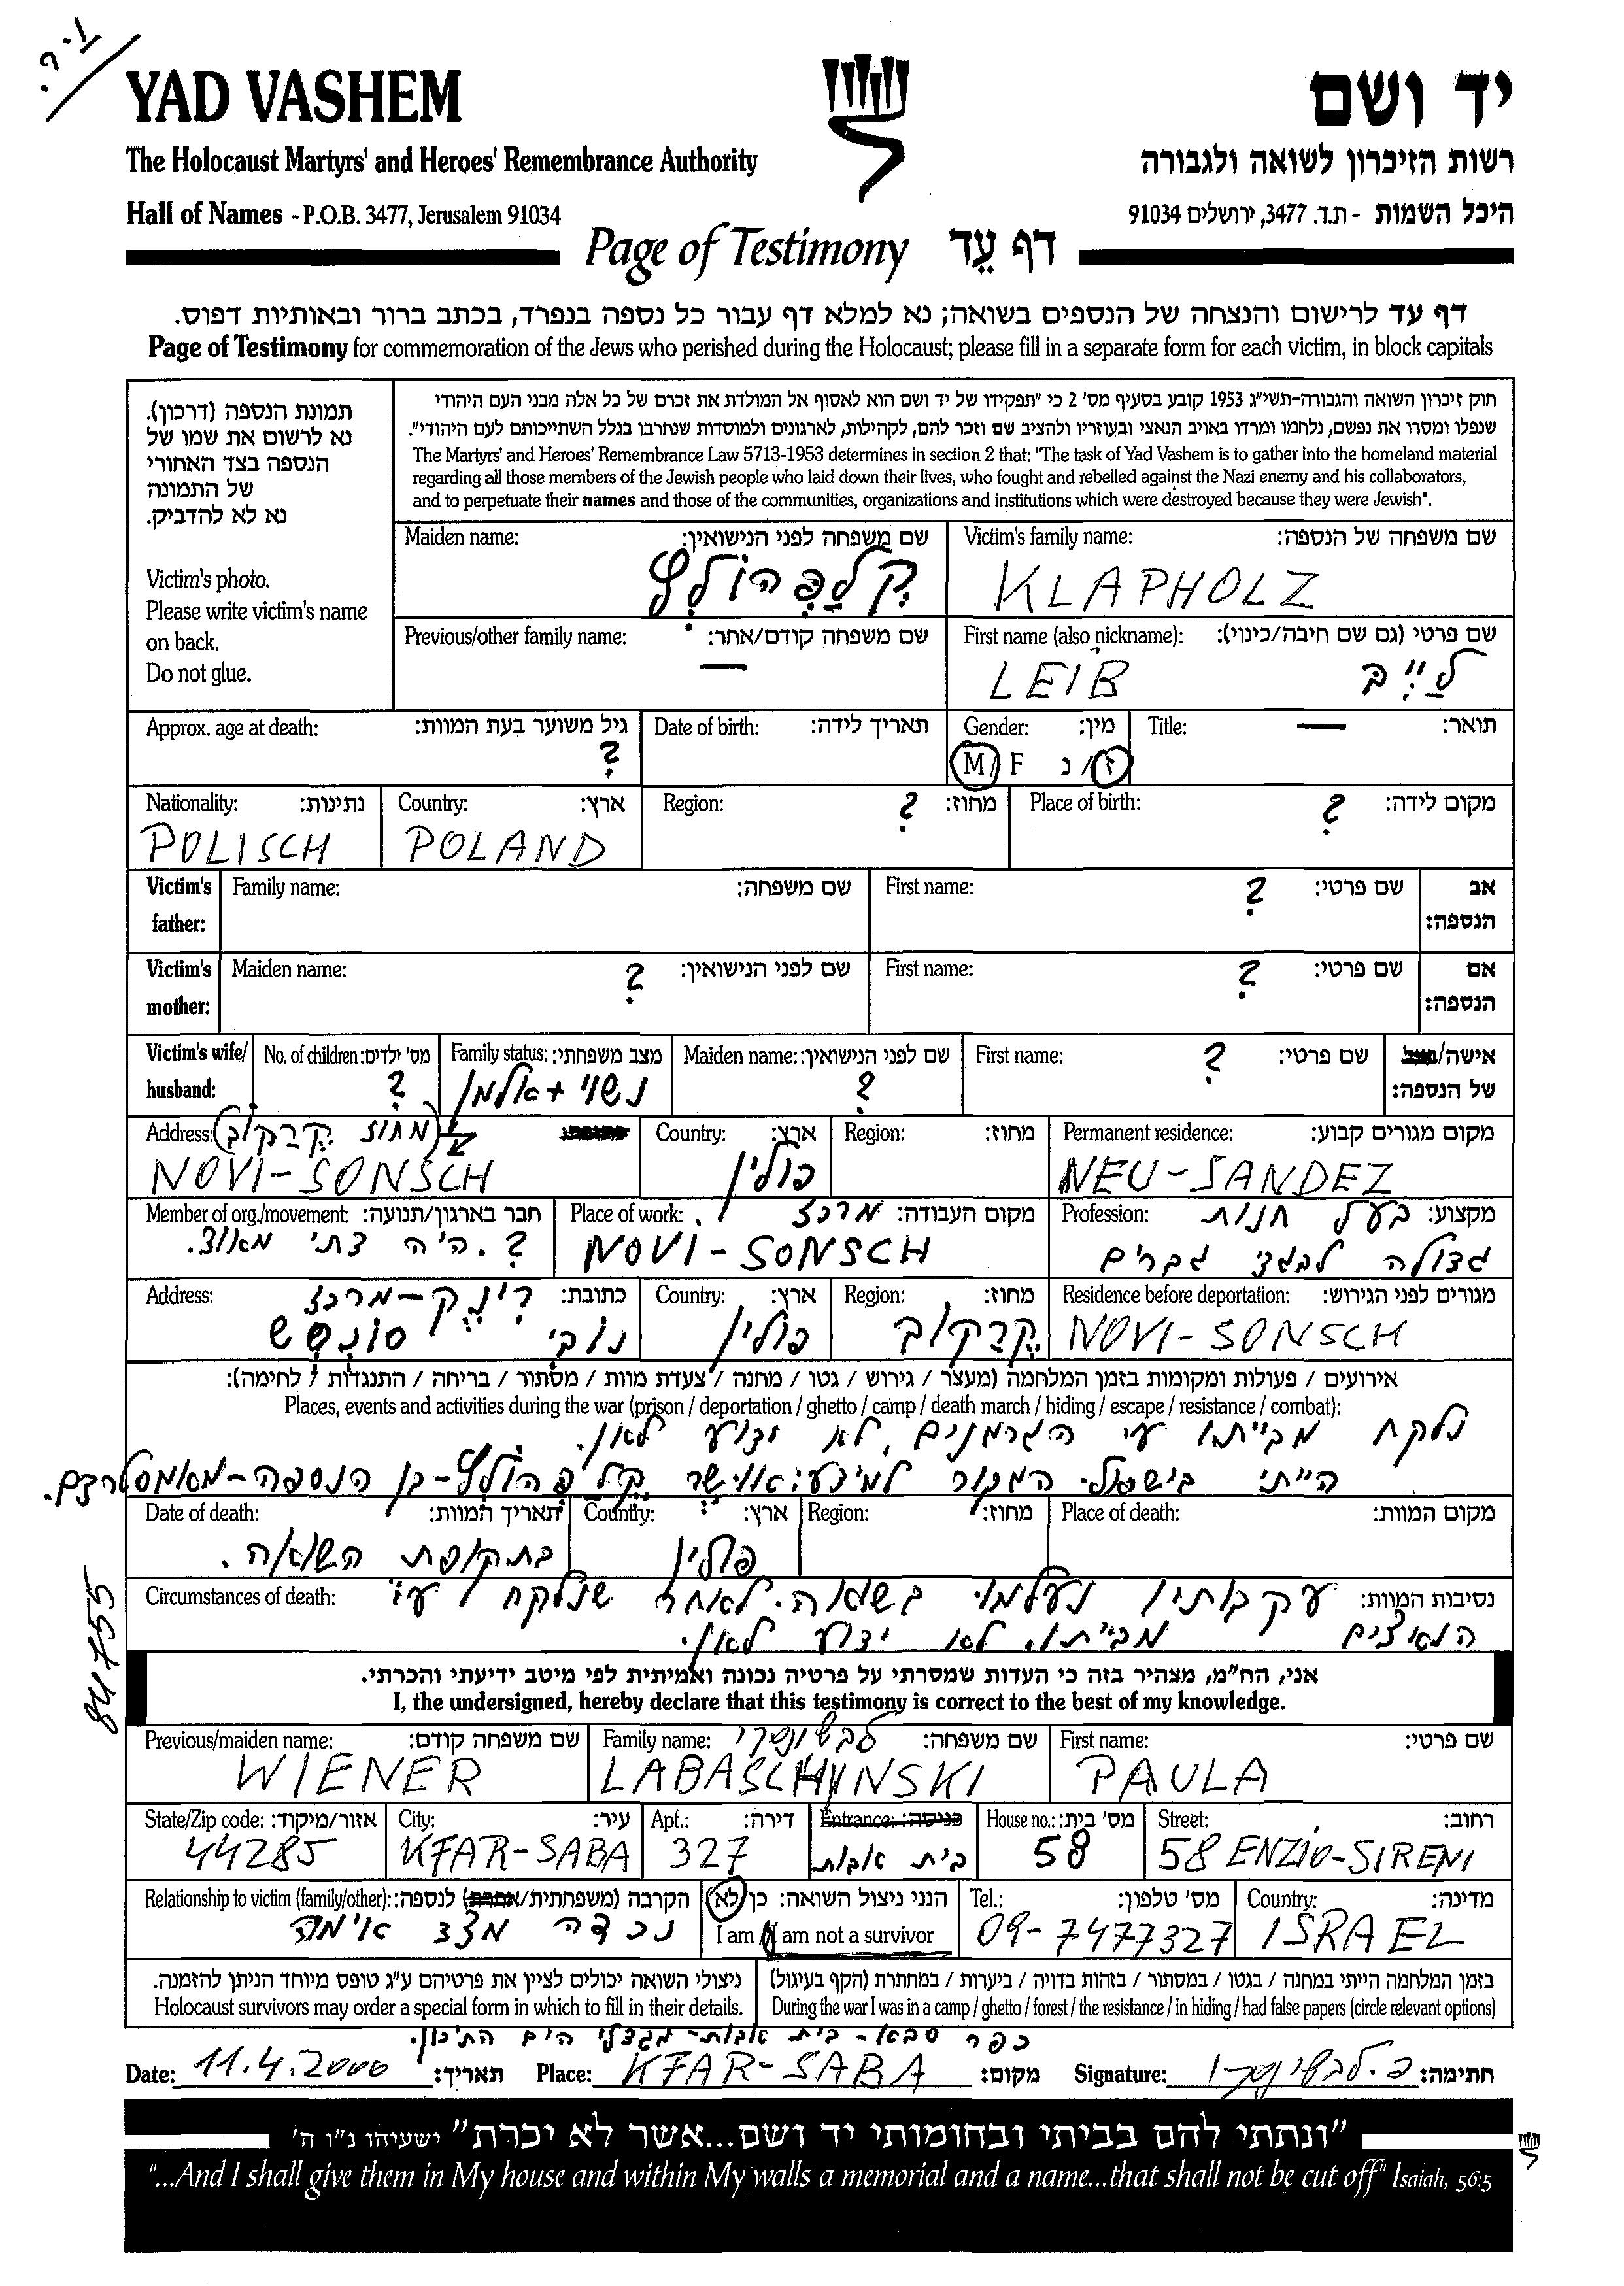 ו.י.
YAD VASHEM
יד ושם
The Holocaust Martyrs' and Heroes' Remembrance Authority
רשות הזיכרון לשואה ולגבורה
Hall of Names - P.O.B. 3477, Jerusalem 91034
היכל השמות - ת.ד. 3477, ירושלים 91034
Page of Testimony דף עֵד
דף עד לרישום והנצחה של הנספים בשואה; נא למלא דף עבור כל נספה בנפרד, בכתב ברור ובאותיות דפוס.
Page of Testimony for commemoration of the Jews who perished during the Holocaust; please fill in a separate form for each victim, in block capitals
תמונת הנספה (דרכון).
נא לרשום את שמו של
הנספה בצד האחורי
של התמונה
נא לא להדביק.
Victim's photo.
Please write victim's name
on back.
Do not glue.
חוק זיכרון השואה והגבורה-תשי"ג 1953 קובע בסעיף מס' 2 כי "תפקידו של יד ושם הוא לאסוף אל המולדת את זכרם של כל אלה מבני העם היהודי
שנפלו ומסרו את נפשם, נלחמו ומרדו באויב הנאצי ובעוזריו ולהציב שם וזכר להם, לקהילות, לארגונים ולמוסדות שנחרבו בגלל השתייכותם לעם היהודי".
The Martyrs' and Heroes' Remembrance Law 5713-1953 determines in section 2 that: "The task of Yad Vashem is to gather into the homeland material
regarding all those members of the Jewish people who laid down their lives, who fought and rebelled against the Nazi enemy and his collaborators,
and to perpetuate their names and those of the communities, organizations and institutions which were destroyed because they were Jewish".
Maiden name: שם משפחה לפני הנישואין:
קלפהולץ
Victim's family name: שם משפחה של הנספה:
KLAPHOLZ
Previous/other family name: שם משפחה קודם/אחר:
—
First name (also nickname): שם פרטי (גם שם חיבה/כינוי):
LEIB לייב
Approx. age at death: גיל משוער בעת המוות:
?
Date of birth: תאריך לידה:
Gender: מין:
M/F ז/נ
Title: — תואר:
Nationality: נתינות:
POLISCH
Country: ארץ:
POLAND
Region: ? מחוז:
Place of birth: ? מקום לידה:
Victim's father: Family name: שם משפחה: First name: ? שם פרטי: אב הנספה:
Victim's mother: Maiden name: ? שם לפני הנישואין: First name: ? שם פרטי: אם הנספה:
Victim's wife/husband:
No. of children: מס' ילדים:
?
Family status: מצב משפחתי:
נשוי + אלמן
Maiden name: שם לפני הנישואין:
?
First name: ? שם פרטי:
אישה/
של הנספה:
Address: (מחוז קרקוב)
NOVI-SONSCH
Country: ארץ:
פולין
Region: מחוז:
Permanent residence: מקום מגורים קבוע:
NEU-SANDEZ
Member of org./movement: חבר בארגון/תנועה:
?. היה דתי מאוד.
Place of work: מקום העבודה: מרכז
NOVI-SONSCH
Profession: מקצוע: בעל חנות
גדולה לבגדי גברים
Address: כתובת: רינק-מרכז
נובי סונטש
Country: ארץ:
פולין
Region: מחוז:
קרקוב
Residence before deportation: מגורים לפני הגירוש:
NOVI-SONSCH
אירועים / פעולות ומקומות בזמן המלחמה (מעצר / גירוש / גטו / מחנה / צעדת מוות / מסתור / בריחה / התנגדות / לחימה):
Places, events and activities during the war (prison / deportation / ghetto / camp / death march / hiding / escape / resistance / combat):
נלקח מביתו ע"י הגרמנים, לא ידוע לאן.
הייתי בישראל. המקור למידע: אושר קלפהולץ-בן הנספה-מאמסטרדם.
Date of death: תאריך המוות:
בתקופת השואה.
Country: ארץ:
פולין
Region: מחוז:
Place of death: מקום המוות:
Circumstances of death: נסיבות המוות: עקבותיו נעלמו בשואה. לאחר שנלקח ע"י
הנאצים מביתו. לא ידוע לאן.
84755
אני, הח"מ, מצהיר בזה כי העדות שמסרתי על פרטיה נכונה ואמיתית לפי מיטב ידיעתי והכרתי.
I, the undersigned, hereby declare that this testimony is correct to the best of my knowledge.
Previous/maiden name: שם משפחה קודם:
WIENER
Family name: לבשינסקי שם משפחה:
LABASCHYNSKI
First name: שם פרטי:
PAULA
State/Zip code: אזור/מיקוד:
44285
City: עיר:
KFAR-SABA
Apt.: דירה:
327
Entrance: כניסה:
בית אבות
House no.: מס' בית:
58
Street: רחוב:
58 ENZIO-SIRENI
Relationship to victim (family/other): הקרבה (משפחתית/אחרת) לנספה:
נכדה מצד אימה
הנני ניצול השואה: כן לא
I am / am not a survivor
Tel.: מס' טלפון:
09-7477327
Country: מדינה:
ISRAEL
ניצולי השואה יכולים לציין את פרטיהם ע"ג טופס מיוחד הניתן להזמנה.
Holocaust survivors may order a special form in which to fill in their details.
בזמן המלחמה הייתי במחנה / בגטו / במסתור / בזהות בדויה / ביערות / במחתרת (הקף בעיגול)
During the war I was in a camp / ghetto / forest / the resistance / in hiding / had false papers (circle relevant options)
כפר סבא - בית אבות - מגדלי הים התיכון.
Date: 11.4.2000 תאריך: Place: KFAR-SABA מקום: Signature: פ. לבשינסקי חתימה:
"ונתתי להם בביתי ובחומותי יד ושם...אשר לא יכרת" ישעיהו נ"ו ה'
"...And I shall give them in My house and within My walls a memorial and a name...that shall not be cut off" Isaiah, 56:5